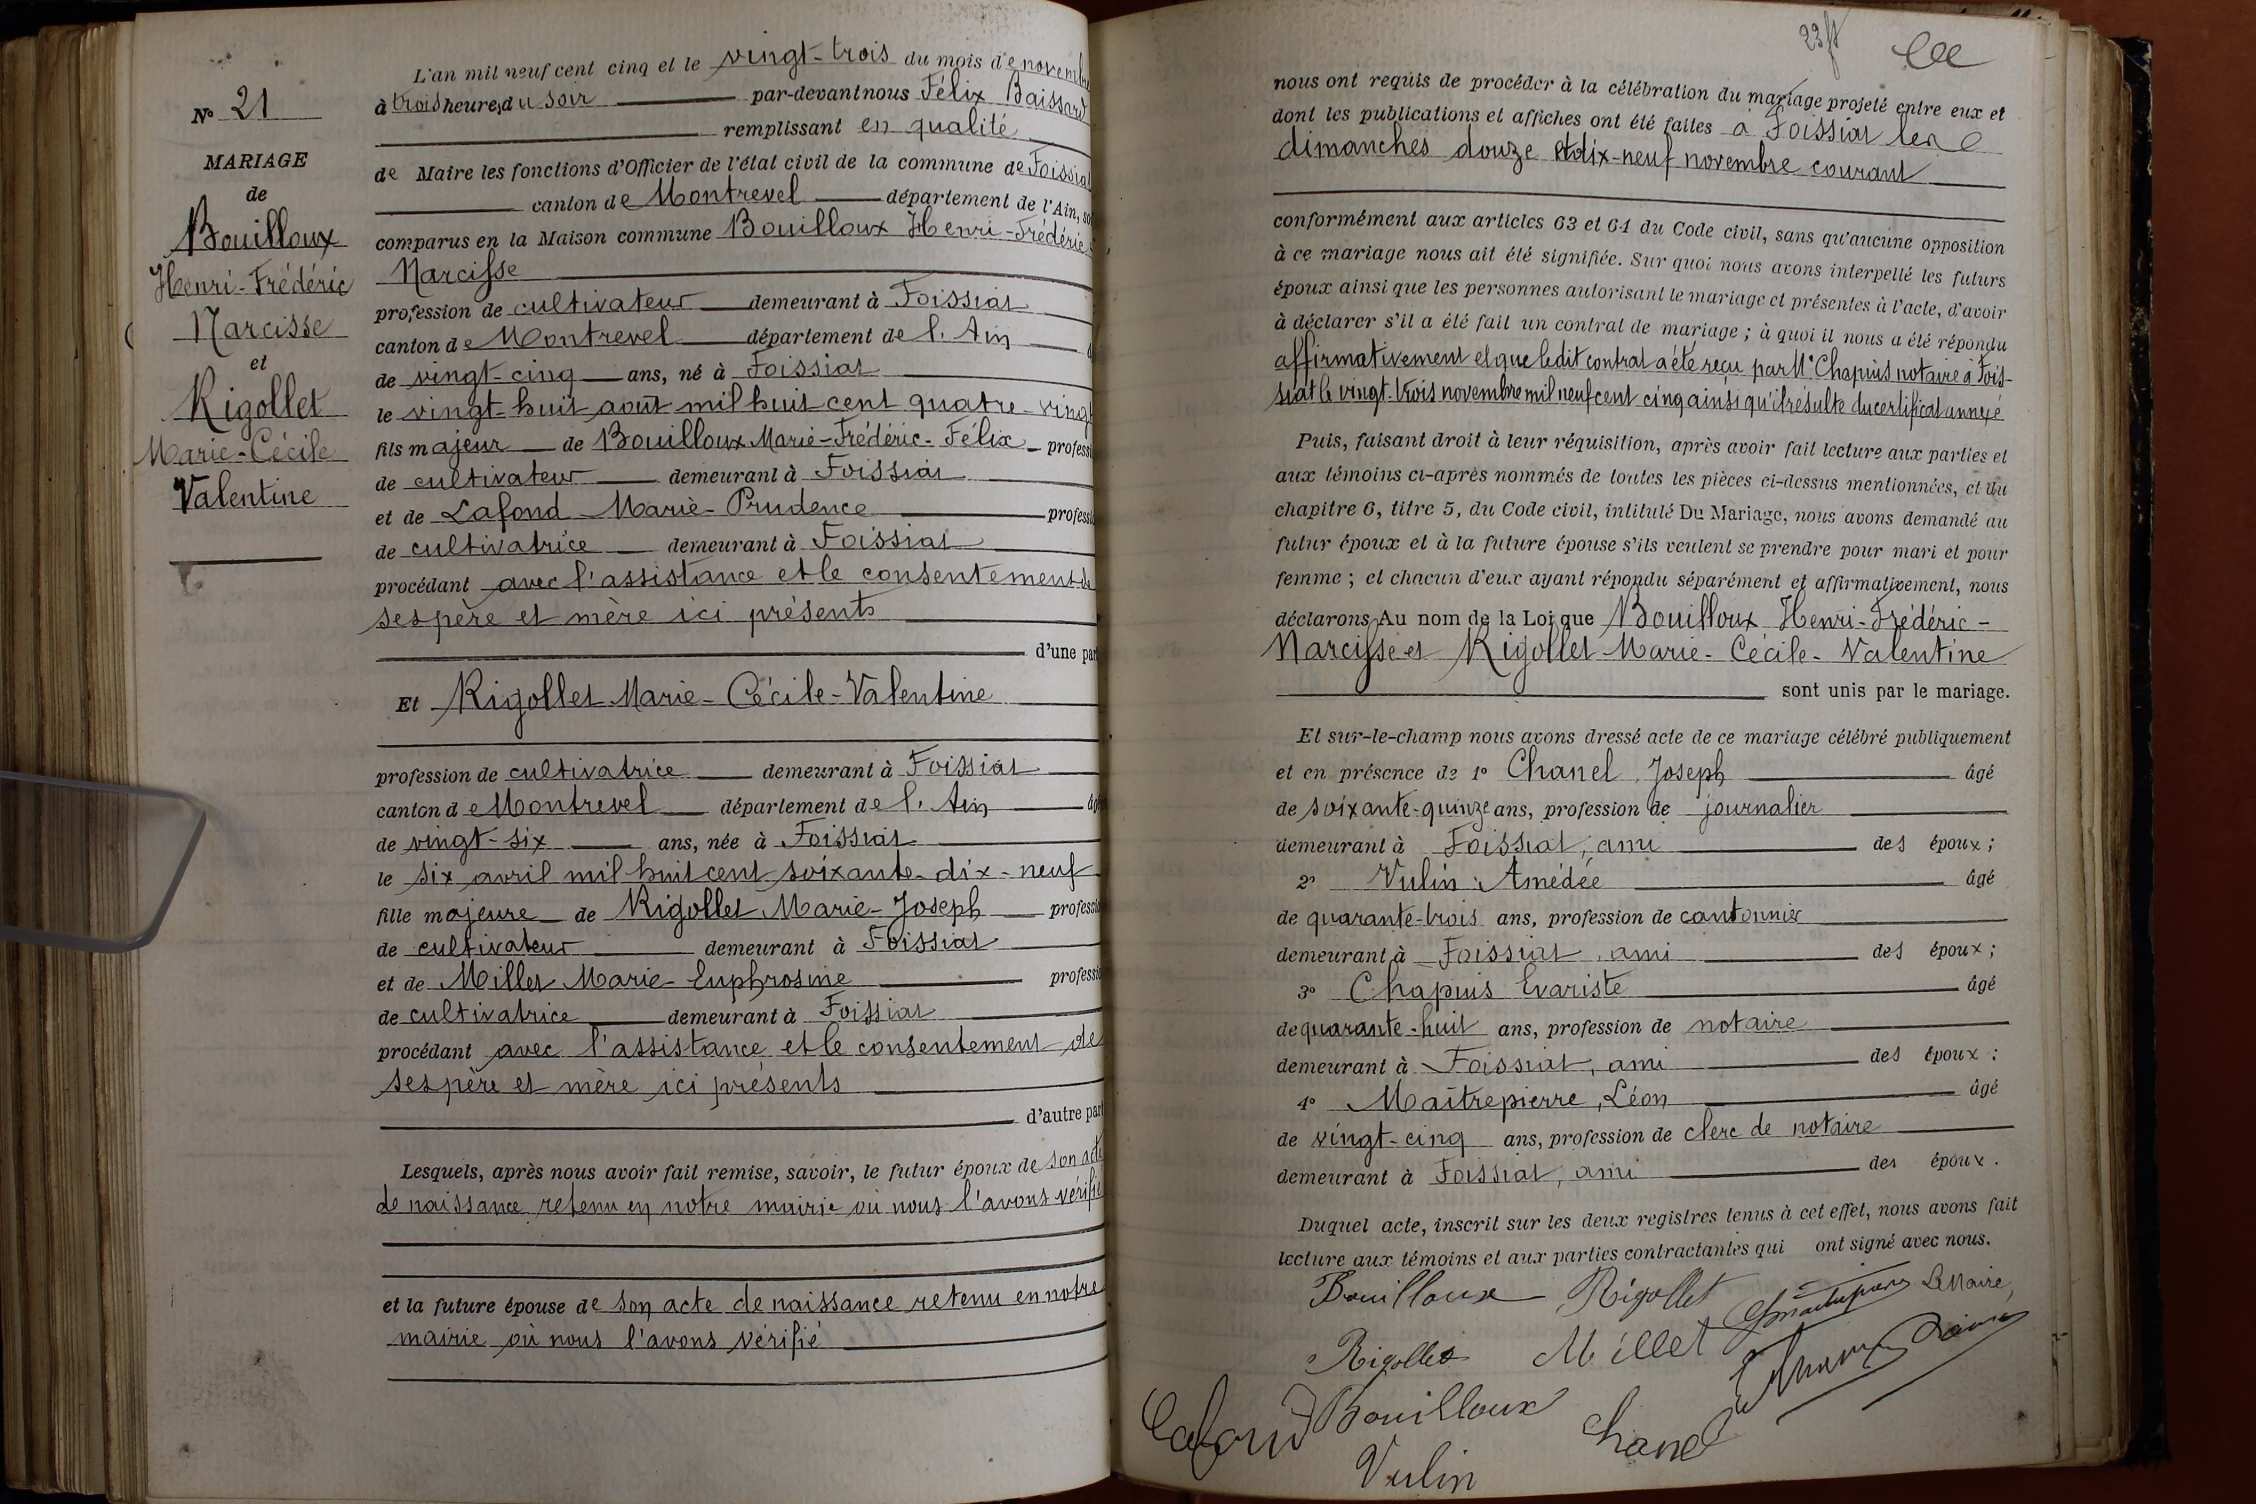 N° 21
MARIAGE
de
Bouilloux
Henri-Frédéric
Narcisse
et
Rigollet
Marie-Cécile
Valentine
L'an mil neuf cent cinq et le vingt-trois du mois de novembre
à trois heures du soir par-devant nous Félix Baissard
remplissant en qualité
de Maire les fonctions d'Officier de l'état civil de la commune de Foissiat
canton de Montrevel département de l'Ain, so
comparus en la Maison commune Bouilloux Henri-Frédéric
Narcisse
profession de cultivateur demeurant à Foissiat
canton de Montrevel département de l'Ain
de vingt-cinq ans, né à Foissiat
le vingt-huit août mil huit cent quatre-vingt
fils majeur de Bouilloux Marie-Frédéric-Félix professi
de cultivateur demeurant à Foissiat
et de Lafond Marie-Prudence professi
de cultivatrice demeurant à Foissiat
procédant avec l'assistance et le consentement de
ses père et mère ici présents
d'une par
Et Rigollet Marie-Cécile-Valentine
profession de cultivatrice demeurant à Foissiat
canton de Montrevel département de l'Ain âg
de vingt-six ans, née à Foissiat
le six avril mil huit cent soixante-dix-neuf
fille majeure de Rigollet Marie-Joseph professio
de cultivateur demeurant à Foissiat
et de Millet Marie-Euphrosine professio
de cultivatrice demeurant à Foissiat
procédant avec l'assistance et le consentement de
ses père et mère ici présents
d'autre part
Lesquels, après nous avoir fait remise, savoir, le futur époux de son acte
de naissance retenu en notre mairie où nous l'avons vérifié
et la future épouse de son acte de naissance retenu en notre
mairie où nous l'avons vérifié
23 ft
nous ont requis de procéder à la célébration du mariage projeté entre eux et
dont les publications et affiches ont été faites à Foissiat les
dimanches douze et dix-neuf novembre courant
conformément aux articles 63 et 64 du Code civil, sans qu'aucune opposition
à ce mariage nous ait été signifiée. Sur quoi nous avons interpellé les futurs
époux ainsi que les personnes autorisant le mariage et présentes à l'acte, d'avoir
à déclarer s'il a été fait un contrat de mariage ; à quoi il nous a été répondu
affirmativement et que ledit contrat a été reçu par Me Chapuis notaire à Fois-
siat le vingt-trois novembre mil neuf cent cinq ainsi qu'il résulte du certificat annexé
Puis, faisant droit à leur réquisition, après avoir fait lecture aux parties et
aux témoins ci-après nommés de toutes les pièces ci-dessus mentionnées, et du
chapitre 6, titre 5, du Code civil, intitulé Du Mariage, nous avons demandé au
futur époux et à la future épouse s'ils veulent se prendre pour mari et pour
femme ; et chacun d'eux ayant répondu séparément et affirmativement, nous
déclarons Au nom de la Loi que Bouilloux Henri-Frédéric-
Narcisse et Rigollet Marie-Cécile-Valentine
sont unis par le mariage.
Et sur-le-champ nous avons dressé acte de ce mariage célébré publiquement
et en présence de 1° Chanel Joseph âgé
de soixante-quinze ans, profession de journalier
demeurant à Foissiat, ami des époux ;
2° Vulin Amédée âgé
de quarante-trois ans, profession de cantonnier
demeurant à Foissiat, ami des époux ;
3° Chapuis Evariste âgé
de quarante-huit ans, profession de notaire
demeurant à Foissiat, ami des époux :
4° Maîtrepierre, Léon âgé
de vingt-cinq ans, profession de clerc de notaire
demeurant à Foissiat, ami des époux.
Duquel acte, inscrit sur les deux registres tenus à cet effet, nous avons fait
lecture aux témoins et aux parties contractantes qui ont signé avec nous.
Bouilloux Rigollet Le Maire,
Rigollet Millet
Lafond Bouilloux Chanel
Vulin